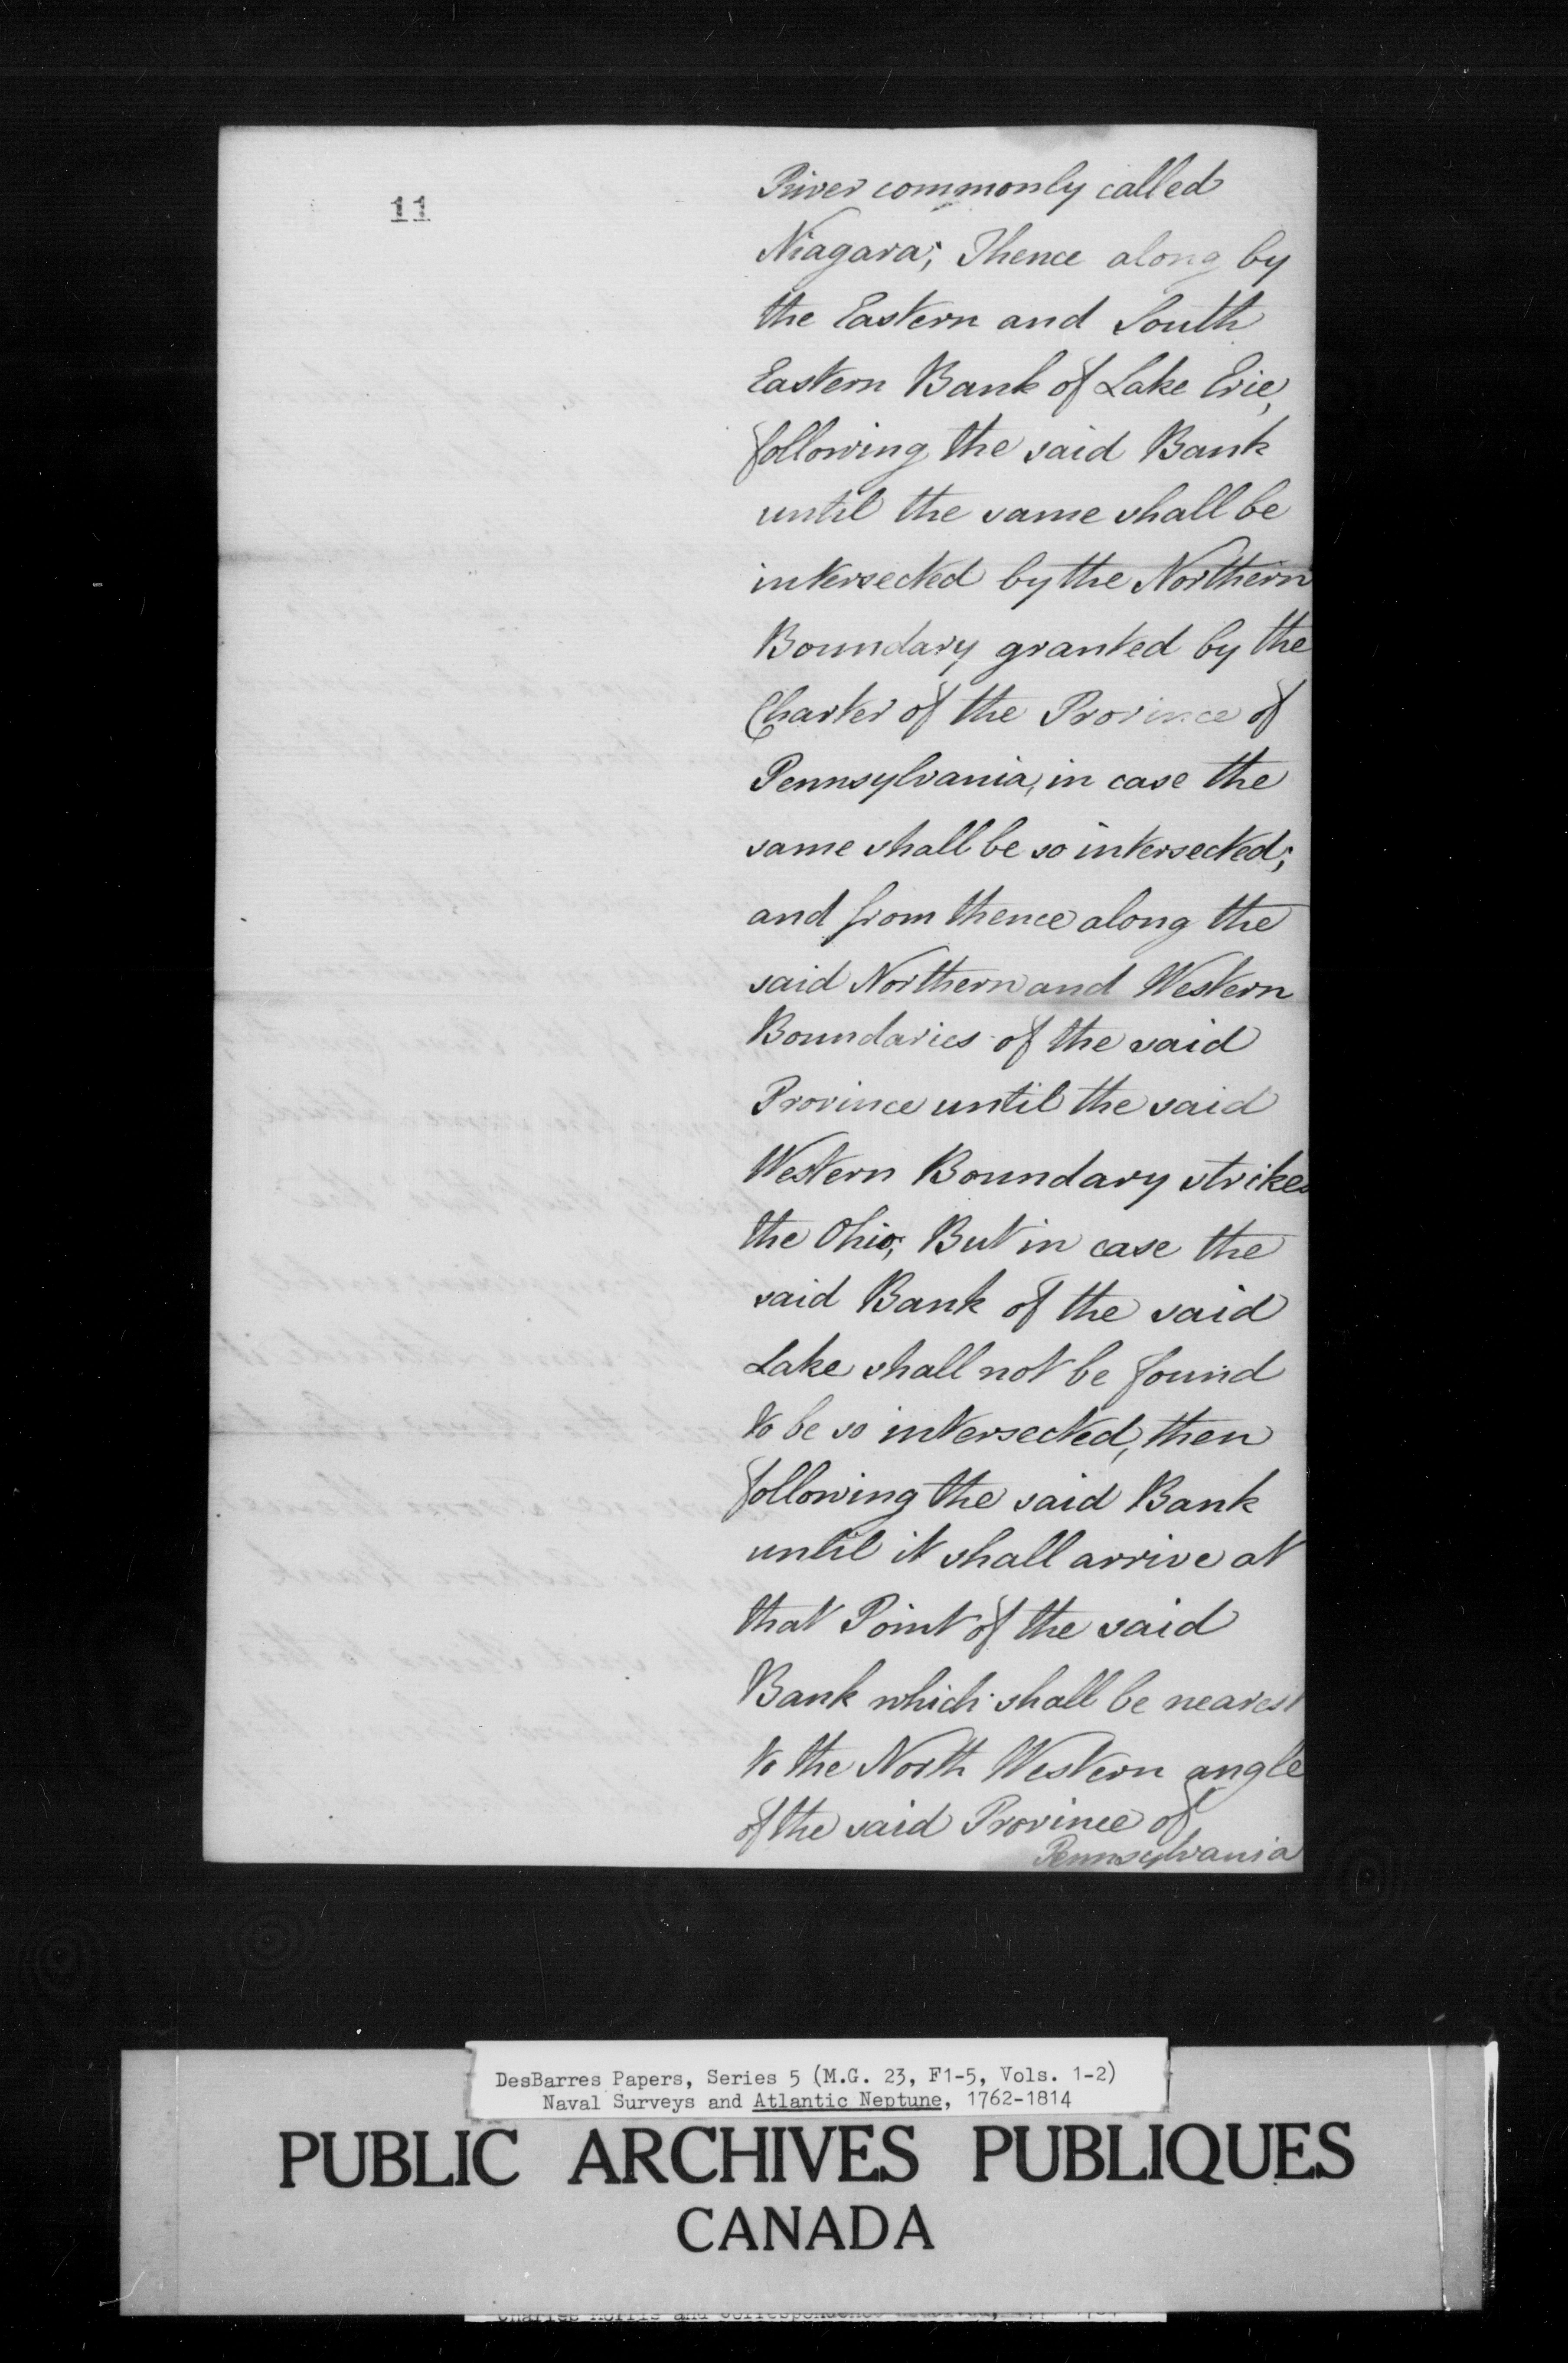 11
River commonly called
Niagara; Thence along by
the Eastern and South
Eastern Bank of Lake Erie,
following the said Bank
until the same shall be
intersected by the Northern
Boundary granted by the
Charter of the Province of
Pennsylvania, in case the
same shall be so intersected;
and from thence along the
said Northern and Western
Boundaries of the said
Province until the said
Western Boundary strikes
the Ohio; But in case the
said Bank of the said
Lake shall not be found
to be so intersected, then
following the said Bank
until it shall arrive at
that Point of the said
Bank which shall be nearest
to the North Western angle
of the said Province of
Pennsylvania
DesBarres Papers, Series 5 (M.G. 23, F1-5, Vols. 1-2)
Naval Surveys and Atlantic Neptune, 1762-1814
PUBLIC ARCHIVES PUBLIQUES
CANADA